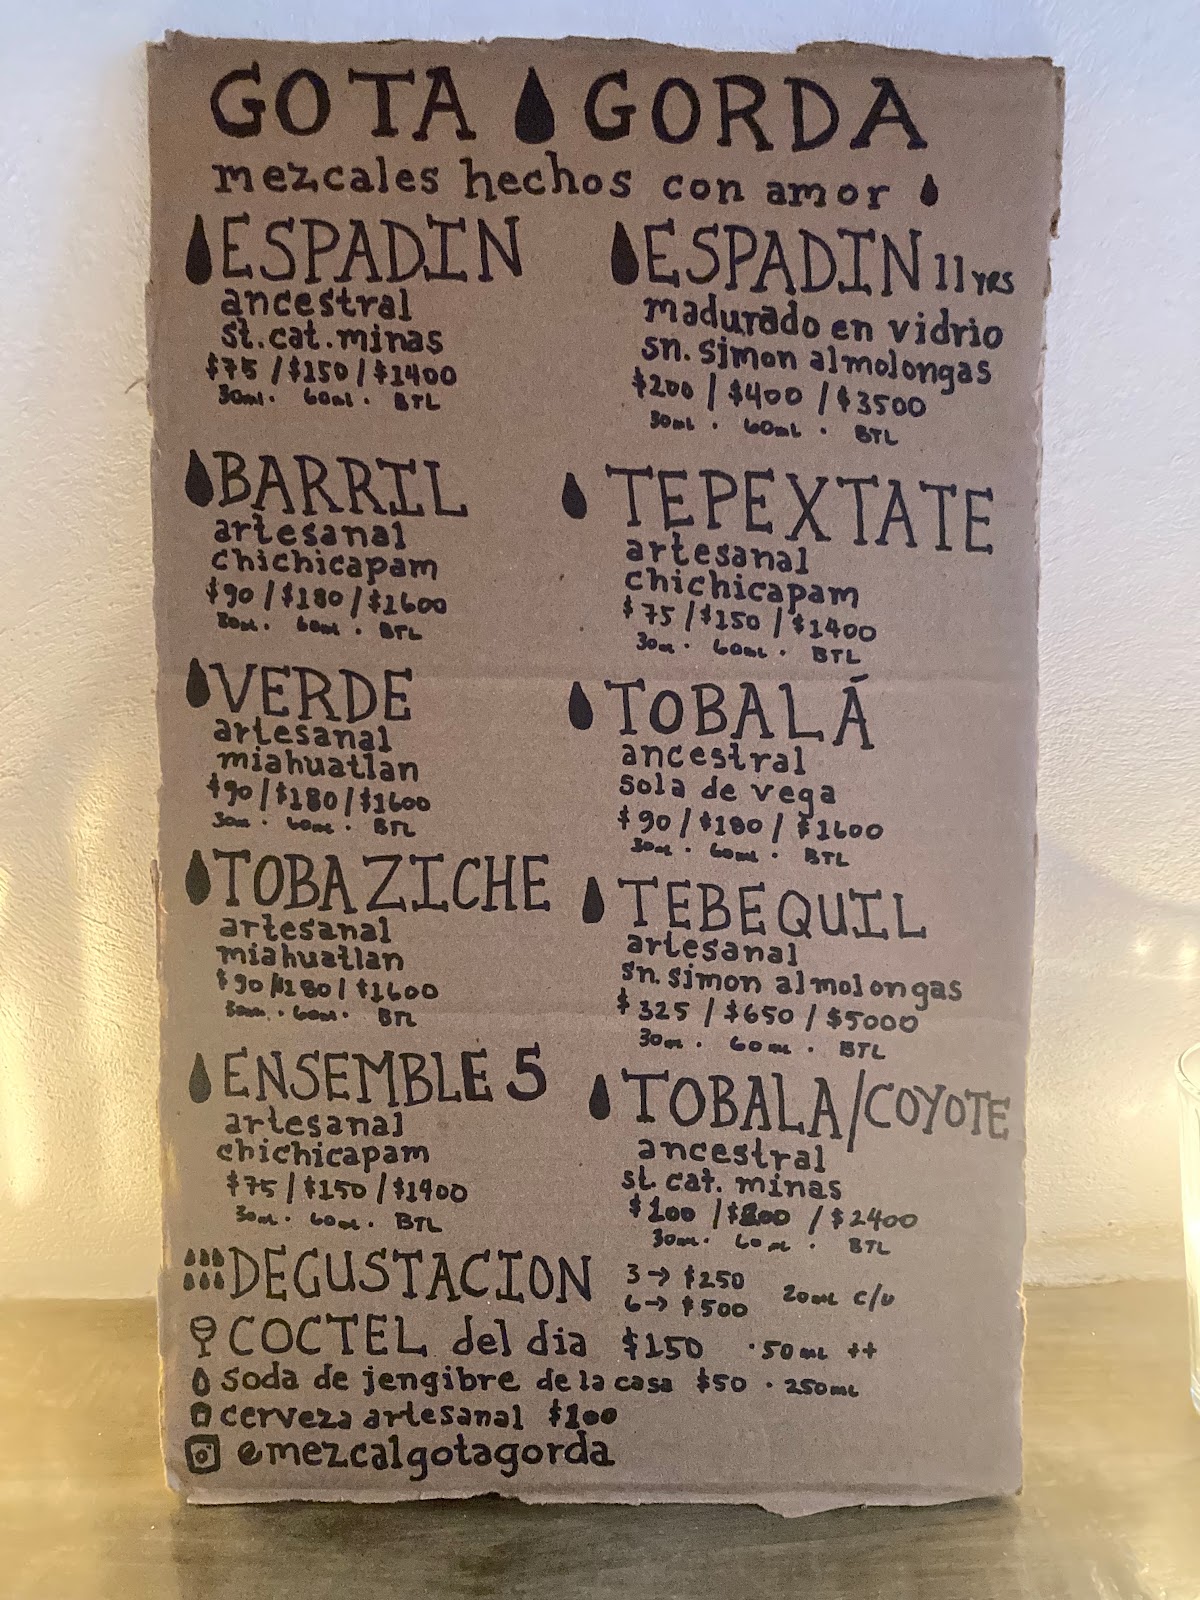 GOTA GORDA
mezcales hechos con amor
ESPADIN
ancestral
st. cat. minas
$75 / $150 / $1400
30ml. 60ml. BTL
ESPADIN 11 yrs
madurado en vidrio
sn. simon almolongas
$200 / $400 / $3500
30ml . 60ml . BTL
BARRIL
artesanal
chichicapam
$90 / $180 / $1600
30ml. 60ml. BTL
TEPEXTATE
artesanal
chichicapam
$75 / $150 / $1400
30ml . 60ml . BTL
VERDE
artesanal
miahuatlan
$90 / $180 / $1600
30ml . 60ml . BTL
TOBALÁ
ancestral
sola de vega
$90 / $180 / $1600
30ml . 60ml . BTL
TOBAZICHE
artesanal
miahuatlan
$90 / $180 / $1600
30ml . 60ml . BTL
TEBEQUIL
artesanal
sn. simon almolongas
$325 / $650 / $5000
30ml . 60ml . BTL
ENSEMBLE 5
artesanal
chichicapam
$75 / $150 / $1400
30ml . 60ml . BTL
TOBALA/COYOTE
ancestral
st. cat. minas
$100 / $200 / $2400
30ml. 60ml . BTL
DEGUSTACION 3 → $250
6 → $500 20ml c/u
COCTEL del dia $150 . 50ml ++
soda de jengibre de la casa $50 . 250ml
cerveza artesanal $100
@mezcalgotagorda